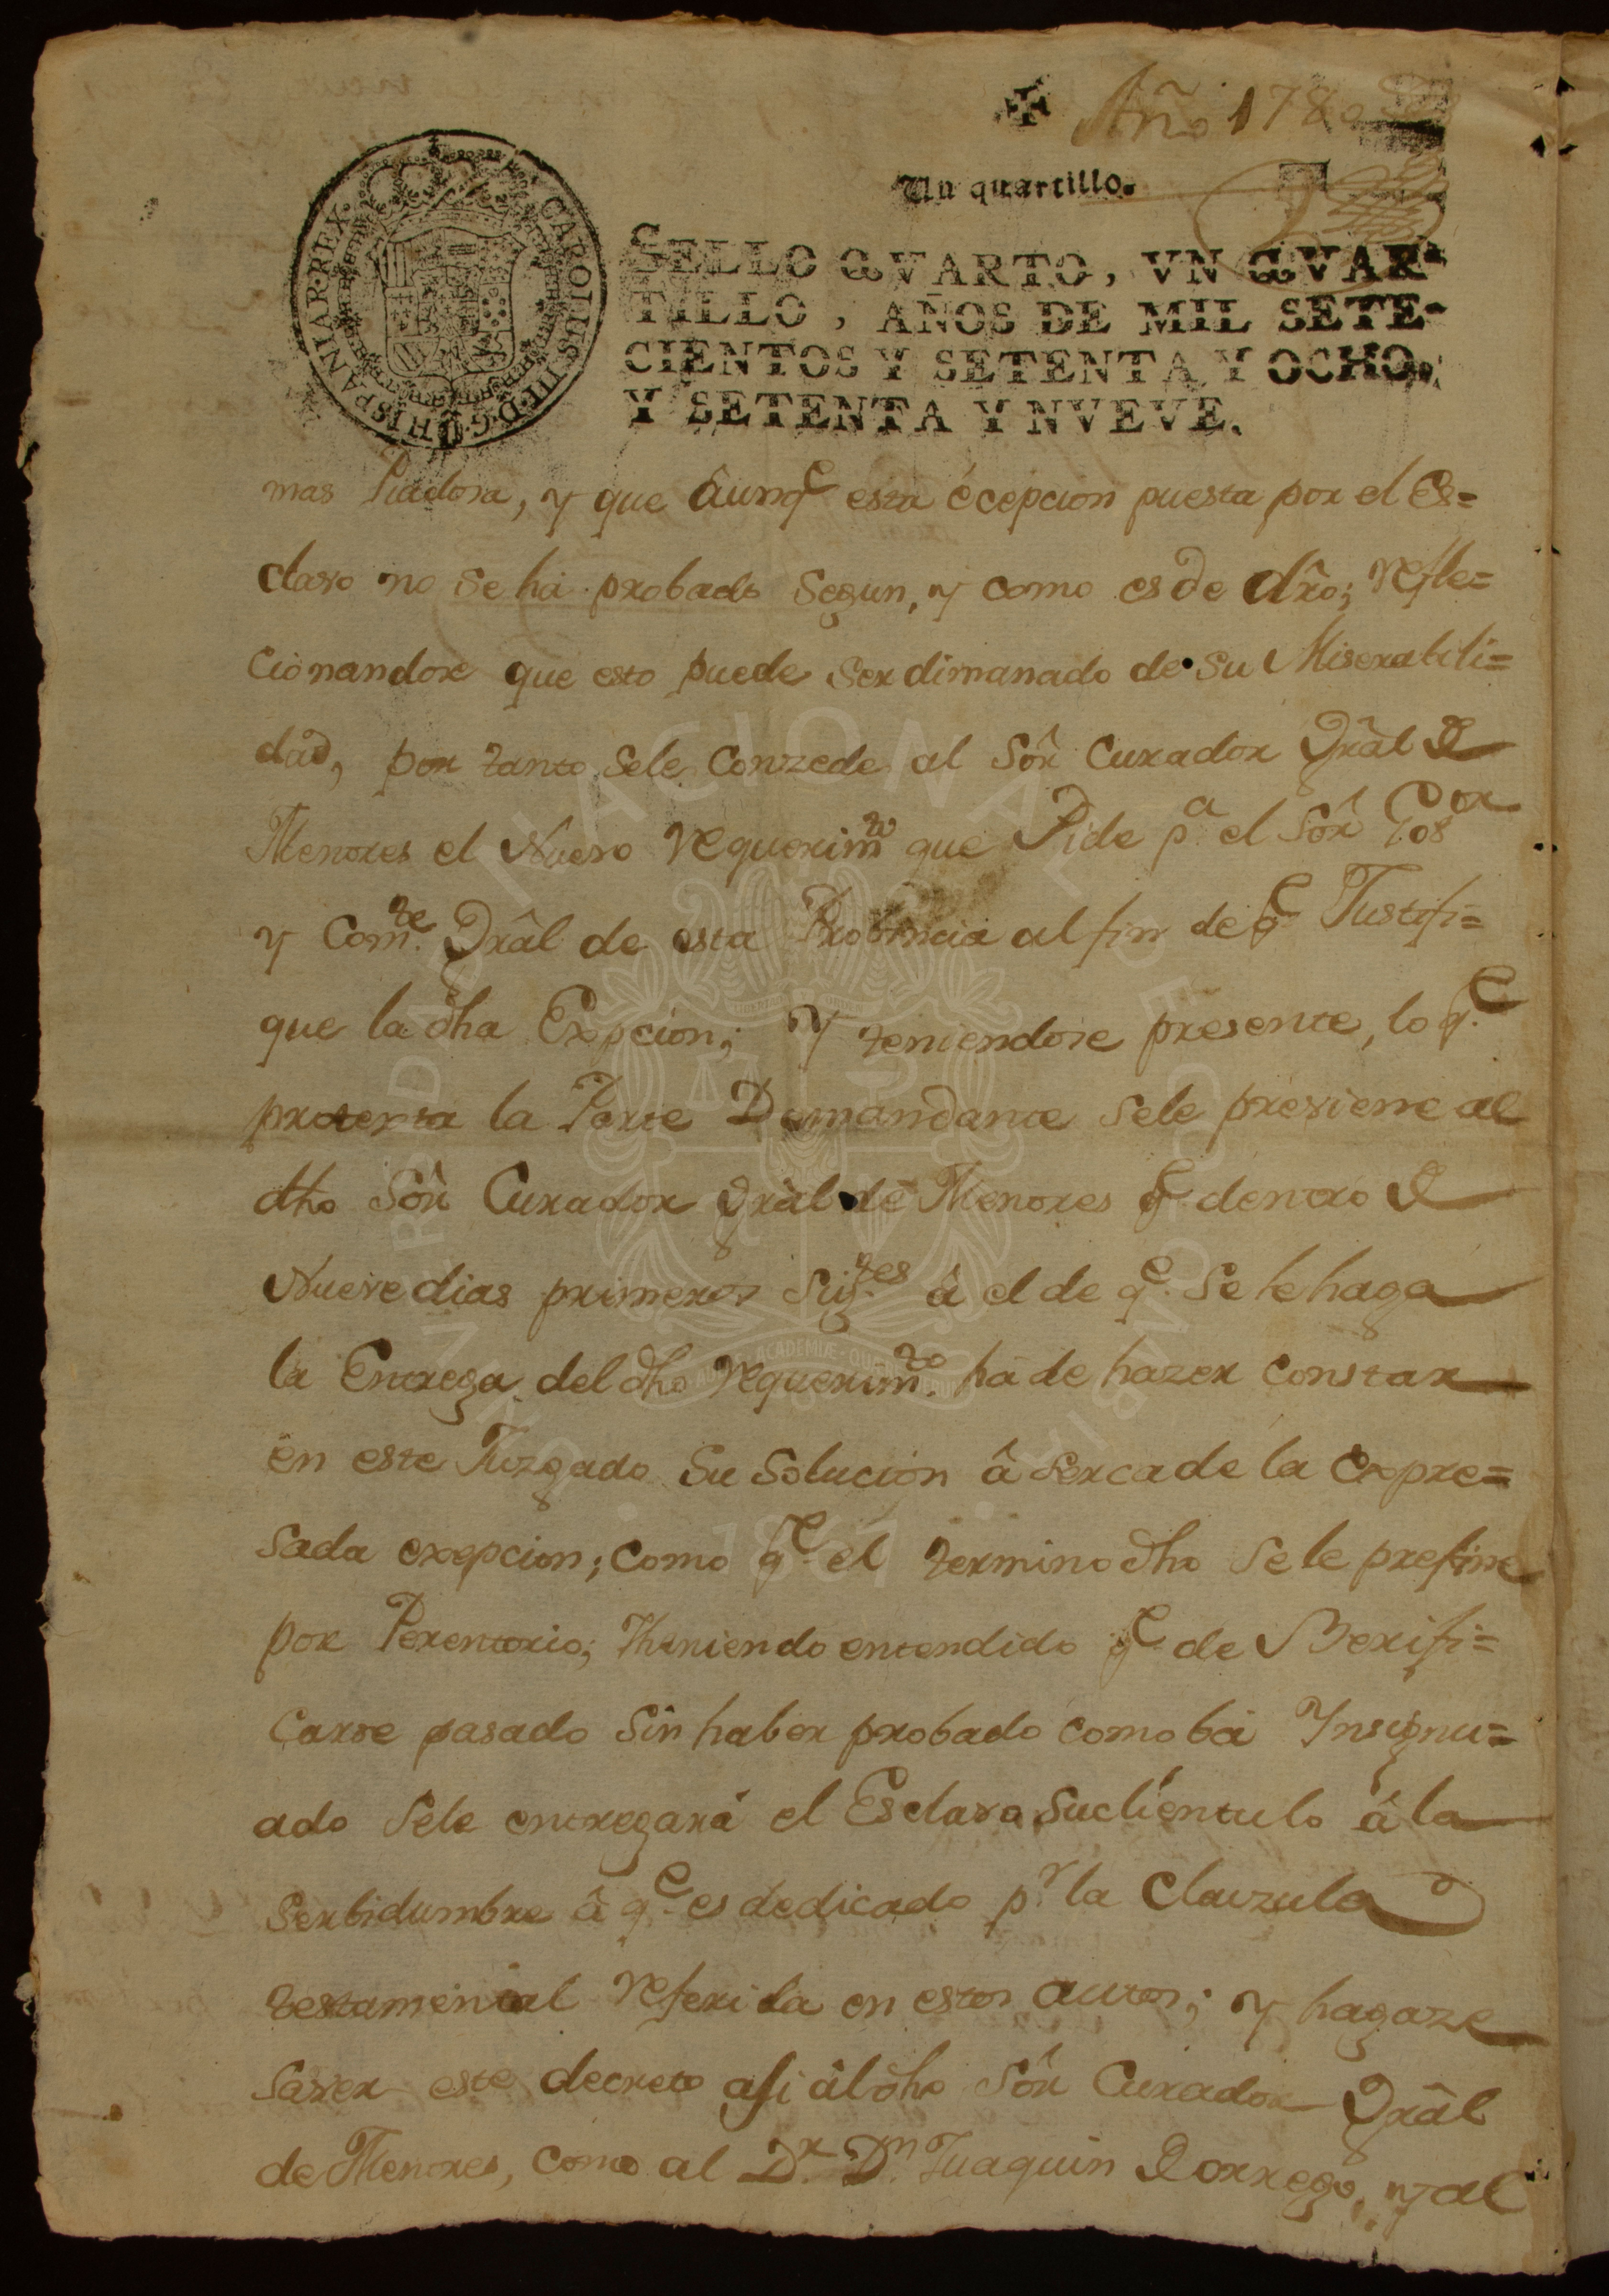 Año 1780
Un quartillo.
CAROLUS III D. G. HISPANIAR. REX
SELLO QVARTO, VN QVAR-
TILLO, AÑOS DE MIL SETE-
CIENTOS Y SETENTA Y OCHO,
Y SETENTA Y NVEVE.
mas Piadosa, y que âunq.e esta écepcion puesta por el Es=
clavo no se há probado segun, y como es de dr̃o; refle=
cionandose que esto puede ser dimanado de su Miserabili=
dad, por tanto sele Conzede al Sôr Curador Grâl de
Menores el Nuevo requerim.to que Pide p.a el Sôr Gos.or
y Com.te Grâl de esta Probincia al fin de q.e Justifi=
que la dha Exepcion; Y teniendose presente, lo q.e
protexta la Parte Demandante sele previene al
dho Sôr Curador Grâl de Menores q.e dentro de
Nueve dias primeros Sig.tes â el de q.e se le haga
la Entrega del dho requerim.to ha de hazer constar
en este Juzgado su solucion â serca de la expre=
sada exepcion; como q.e el termino dho se le prefine
por Perentorio; Theniendo entendido q.e de Berifi=
carse pasado sin haber probado como bá Insignu=
ado sele entregará el Esclavo su clientulo â la
Serbidumbre â q.e es dedicado p.r la Clauzula
testamental referida en estos autos; y hagaze
saver este decreto asi âl dho Sôr Curador Grâl
de Menores, como al D.r D.n Juaquin Dorrego, y al